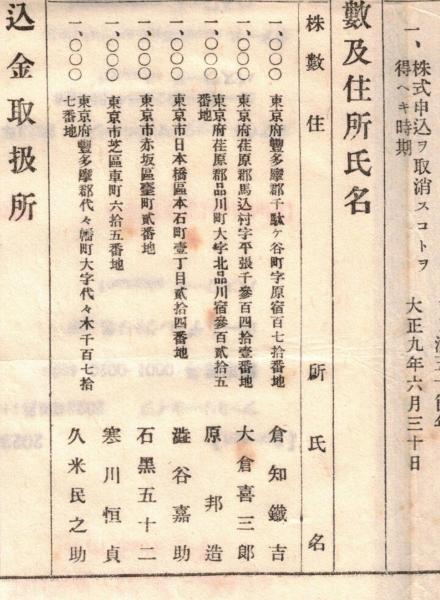 一、株式申込ヲ取消スコトヲ
得ヘキ時期
大正九年六月三十日
數及住所氏名
株數 住所 氏名
一〇〇〇 東京府豐多摩郡千駄ケ谷町字原宿百七拾番地 倉知鐵吉
一〇〇〇 東京府荏原郡馬込村字平張千參百四拾壹番地 大倉喜三郎
一〇〇〇 東京府荏原郡品川町大字北品川宿參百貳拾五
番地 原邦造
一〇〇〇 東京市日本橋區本石町壹丁目貳拾四番地 澁谷嘉助
一〇〇〇 東京市赤坂區臺町貳番地 石黑五十二
一〇〇〇 東京市芝區車町六拾五番地 寒川恒貞
一〇〇〇 東京府豐多摩郡代々幡町大字代々木千百七拾
七番地 久米民之助
込金取扱所